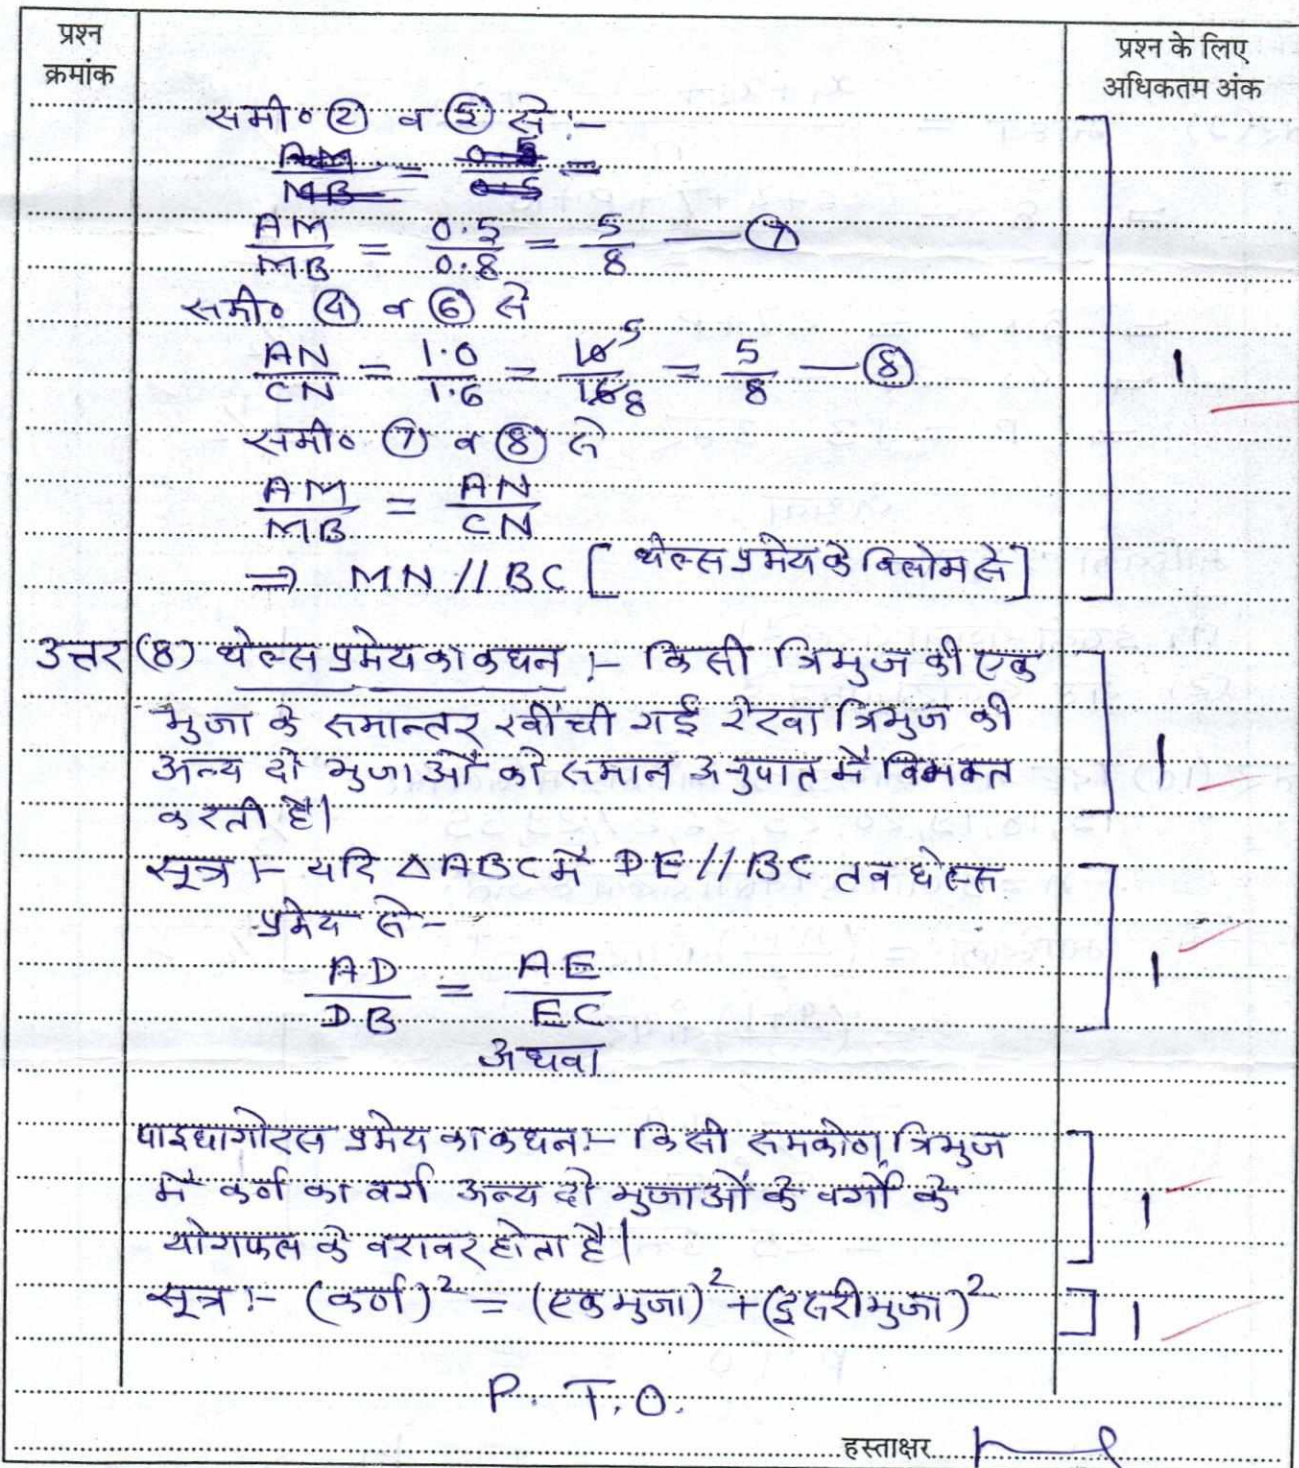 प्रश्न क्रमांक
प्रश्न के लिए अधिकतम अंक
समी० ② व ⑤ से :-
AM/MB = 0.5/0.5 =
AM/MB = 0.5/0.8 = 5/8 — ⑦
समी० ④ व ⑥ से
AN/CN = 1.0/1.6 = 10/16 5/8 = 5/8 — ⑧
1
समी० ⑦ व ⑧ से
AM/MB = AN/CN
⇒ MN // BC [थेल्स प्रमेय के विलोम से]
उत्तर (8) थेल्स प्रमेय का कथन :- किसी त्रिभुज की एक
भुजा के समान्तर खींची गई रेखा त्रिभुज की
अन्य दो भुजाओं को समान अनुपात में विभक्त
1
करती है।
सूत्र :- यदि △ABC में DE // BC तब थेल्स
प्रमेय से -
AD/DB = AE/EC
1
अथवा
पाइथागोरस प्रमेय का कथन :- किसी समकोण त्रिभुज
में कर्ण का वर्ग अन्य दो भुजाओं के वर्गों के
1
योगफल के बराबर होता है।
सूत्र :- (कर्ण)² = (एक भुजा)² + (दूसरी भुजा)²
1
P. T. O.
हस्ताक्षर